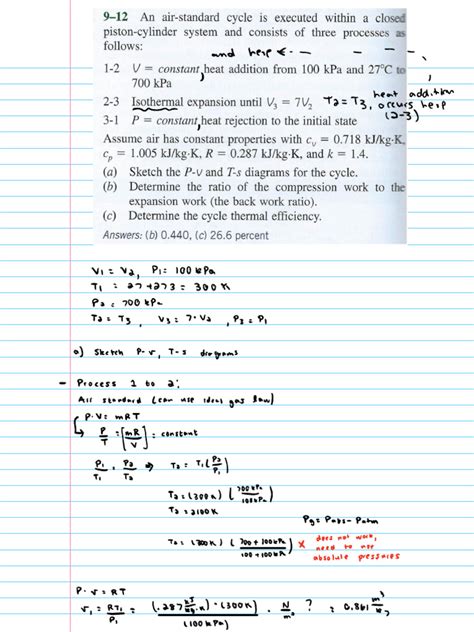 9–12 An air-standard cycle is executed within a closed
piston-cylinder system and consists of three processes as
follows:
and here ←
1-2 V = constant, heat addition from 100 kPa and 27°C to
700 kPa
heat addition
2-3 Isothermal expansion until V₃ = 7V₂ T2 = T3, occurs here
(2-3)
3-1 P = constant, heat rejection to the initial state
Assume air has constant properties with cᵥ = 0.718 kJ/kg·K,
cₚ = 1.005 kJ/kg·K, R = 0.287 kJ/kg·K, and k = 1.4.
(a) Sketch the P-v and T-s diagrams for the cycle.
(b) Determine the ratio of the compression work to the
expansion work (the back work ratio).
(c) Determine the cycle thermal efficiency.
Answers: (b) 0.440, (c) 26.6 percent
V1 = V2, P1 = 100 kPa
T1 = 27+273 = 300 K
P2 = 700 kPa
T2 = T3, V3 = 7·V2, P3 = P1
a) Sketch P-v, T-s diagrams
– Process 1 to 2:
Air standard (can use ideal gas law)
P·V = mRT
P/T = [mR/V] = constant
P1/T1 = P2/T2 ⇒ T2 = T1 (P2/P1)
T2 = (300K) (700 kPa/100 kPa)
T2 = 2100K
Pg = Pabs - Patm
T2 = (300K) (700+100kPa/100+100kPa) × does not work,
need to use
absolute pressures
P·v = RT
v1 = RT1/P1 = (.287 kJ/kg·K)·(300K)/(100 kPa) · N/m² ? = 0.861 m³/kg,